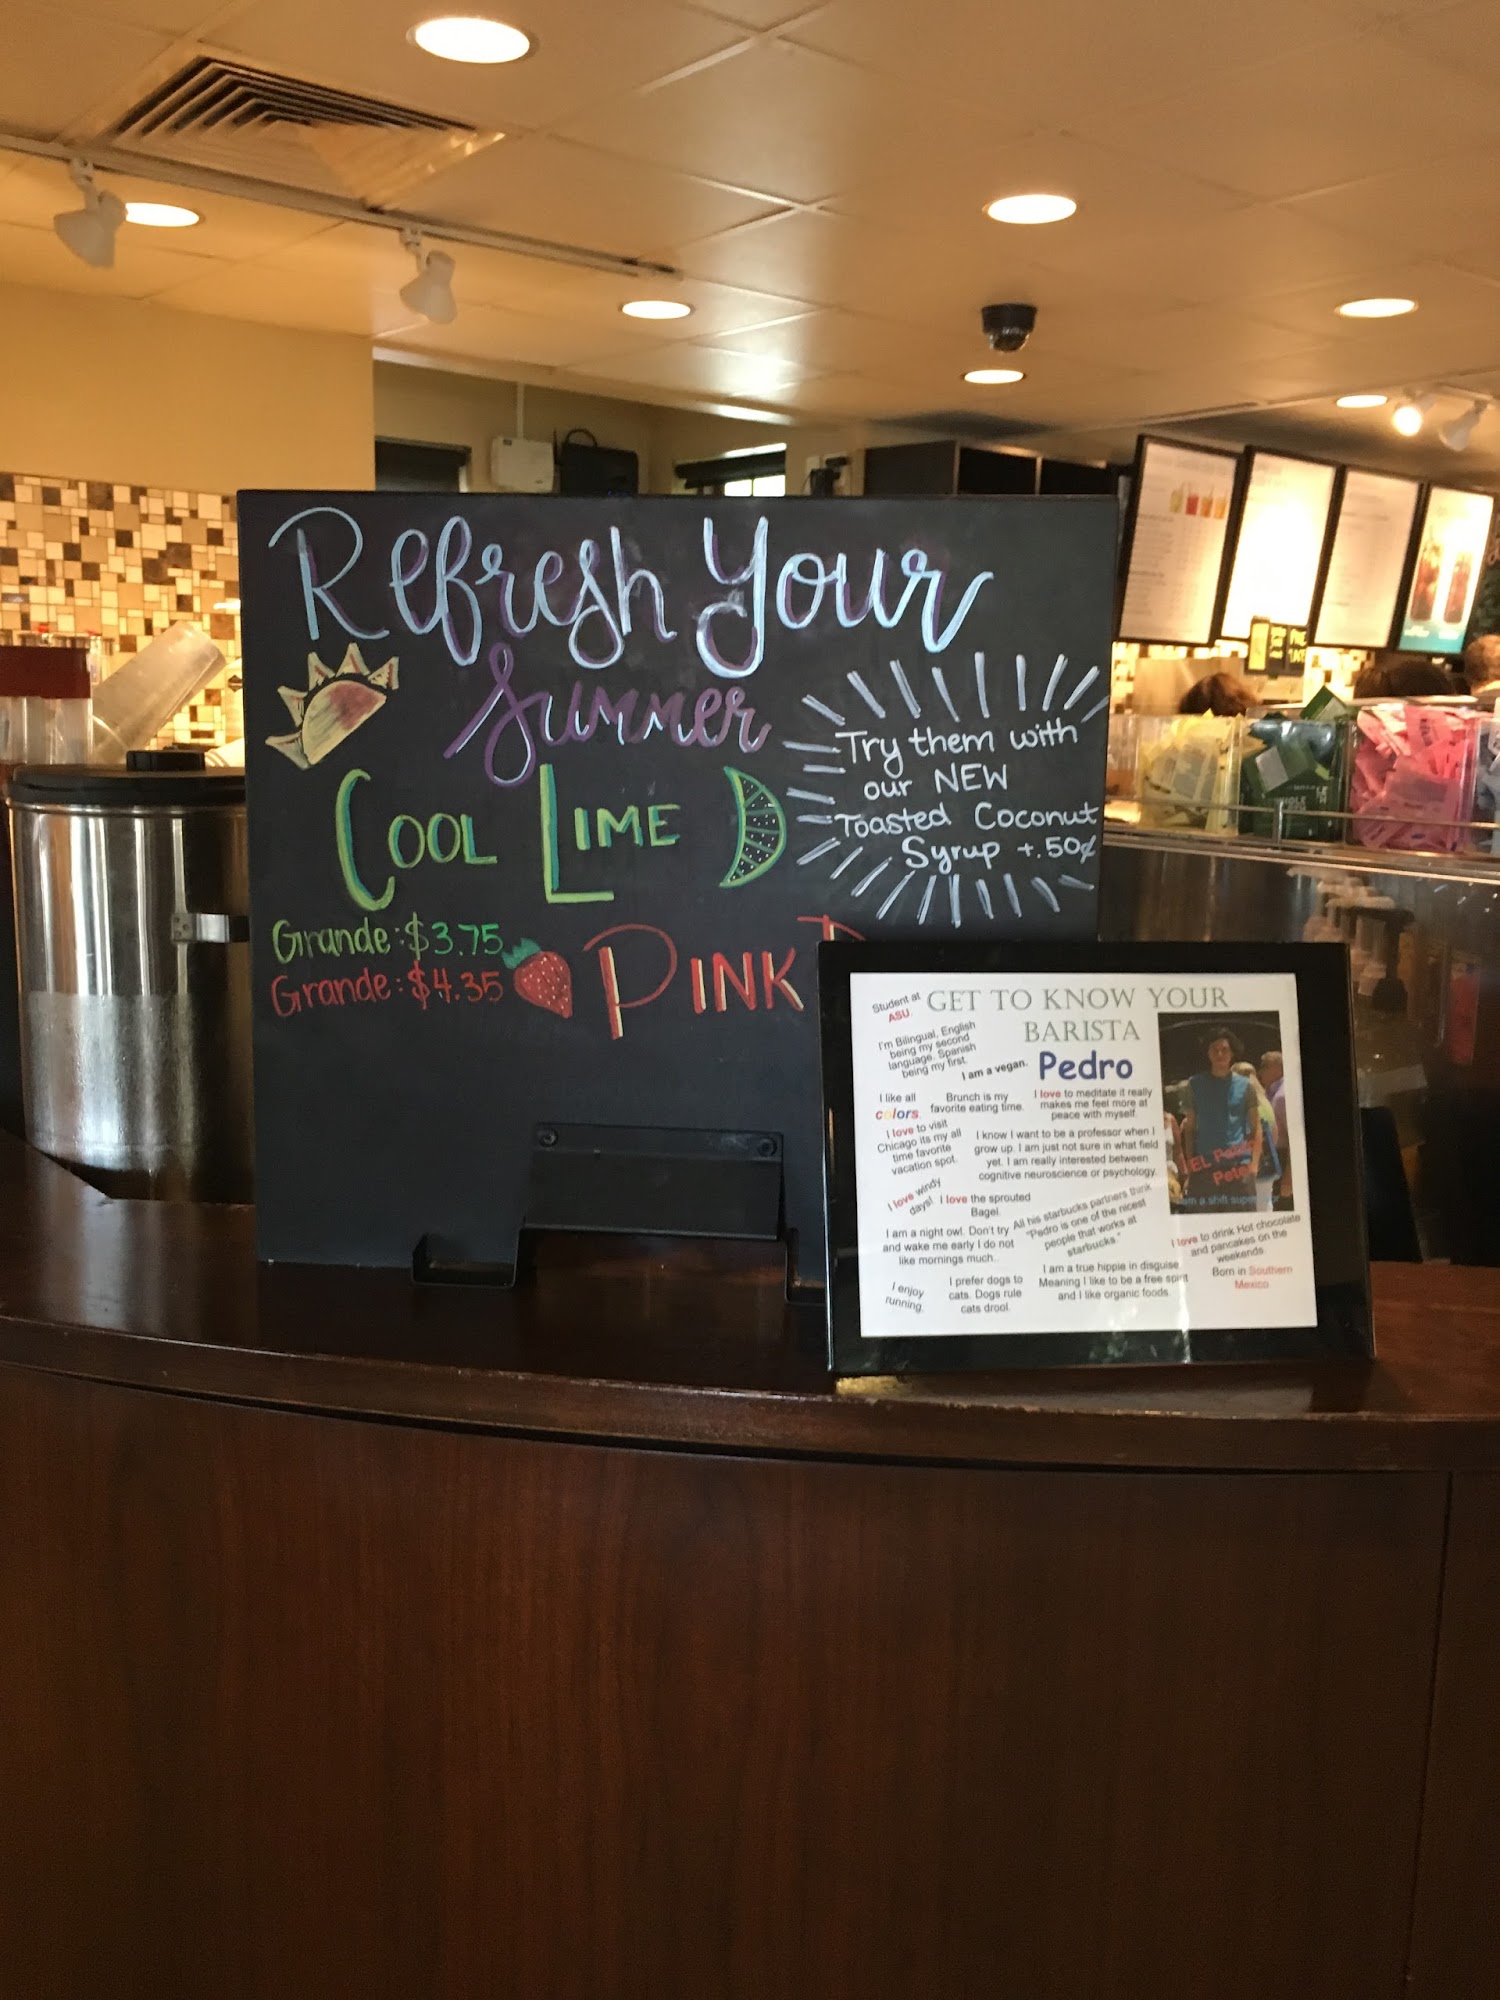 Refresh Your
Summer
Cool Lime
Try them with
our NEW
Toasted Coconut
Syrup +.50¢
Grande: $3.75
Grande: $4.35
Pink
GET TO KNOW YOUR
BARISTA
Pedro
Student at
ASU.
I'm Bilingual, English
being my second
language, Spanish
being my first.
I am a vegan.
I like all
colors.
Brunch is my
favorite eating time.
I love to meditate it really
makes me feel more at
peace with myself.
I love to visit
Chicago its my all
time favorite
vacation spot.
I know I want to be a professor when I
grow up. I am just not sure in what field
yet. I am really interested between
cognitive neuroscience or psychology.
I love windy
days!
I love the sprouted
Bagel.
I am a night owl. Don't try
and wake me early I do not
like mornings much.
All his starbucks partners think
"Pedro is one of the nicest
people that works at
starbucks."
I love to drink Hot chocolate
and pancakes on the
weekends.
I enjoy
running.
I prefer dogs to
cats. Dogs rule
cats drool.
I am a true hippie in disguise
Meaning I like to be a free spirit
and I like organic foods.
Born in Southern
Mexico
EL
am a shift